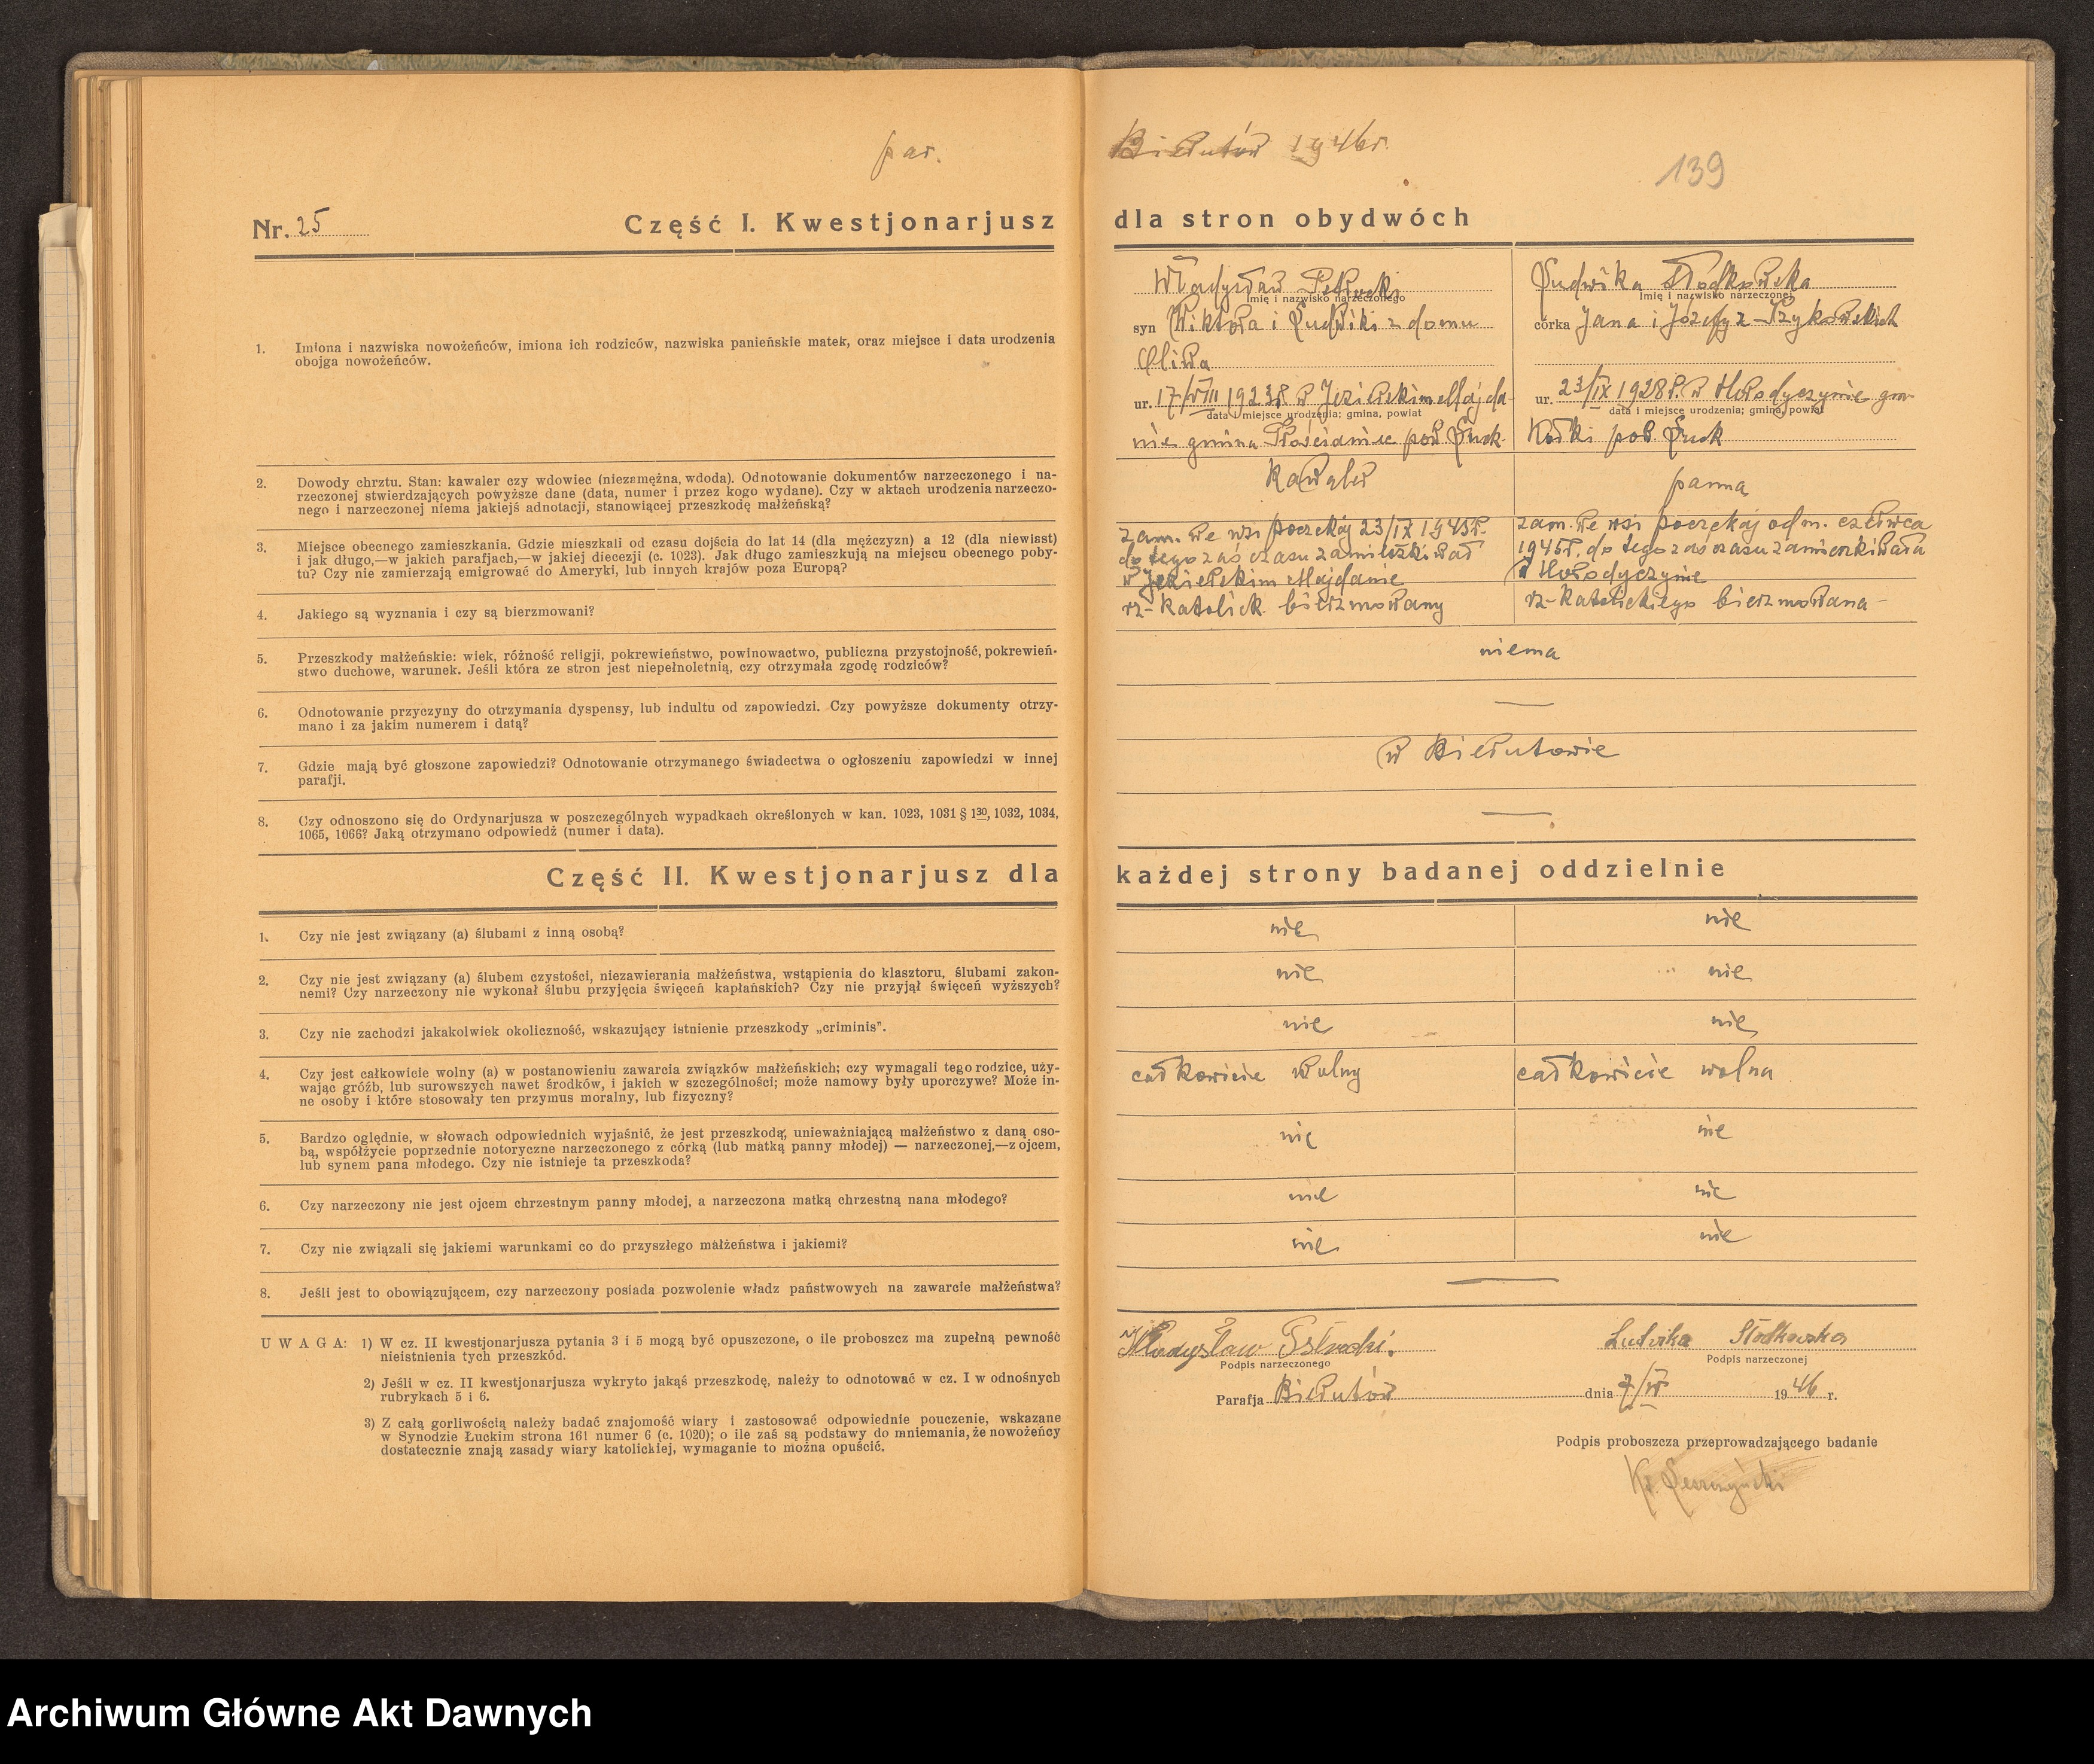 par. Bierutów 1946r.
139
Nr. 25 Część I. Kwestjonarjusz dla stron obydwóch
1. Imiona i nazwiska nowożeńców, imiona ich rodziców, nazwiska panieńskie matek, oraz miejsce i data urodzenia
obojga nowożeńców.
Władysław
Imię i nazwisko narzeczonego
syn Wiktora i Ludwiki z domu
Oliwa
ur. 17/VIII 1923r. w Jezierskim Majda-
data i miejsce urodzenia; gmina, powiat
nie gmina pow Łuck
Ludwika Słodkowska
Imię i nazwisko narzeczonej
córka Jana i Józefy z Szykowskich
ur. 23/IX 1928r. w Hołodyczynie gm
data i miejsce urodzenia; gmina, powiat
Kołki pow. Łuck
2. Dowody chrztu. Stan: kawaler czy wdowiec (niezamężna, wdoda). Odnotowanie dokumentów narzeczonego i na-
rzeczonej stwierdzających powyższe dane (data, numer i przez kogo wydane). Czy w aktach urodzenia narzeczo-
nego i narzeczonej niema jakiejś adnotacji, stanowiącej przeszkodę małżeńską?
kawaler
panna
3. Miejsce obecnego zamieszkania. Gdzie mieszkali od czasu dojścia do lat 14 (dla mężczyzn) a 12 (dla niewiast)
i jak długo,—w jakich parafjach,—w jakiej diecezji (c. 1023). Jak długo zamieszkują na miejscu obecnego poby-
tu? Czy nie zamierzają emigrować do Ameryki, lub innych krajów poza Europą?
zam. we wsi poczekaj 23/IX 1945r.
do tego zaś czasu zamieszkiwał
w Jezierskim Majdanie
zam. we wsi poczekaj od m. czerwca
1945r. do tego zaś czasu zamieszkiwała
w Hołodyczynie
4. Jakiego są wyznania i czy są bierzmowani?
rz-katolick. bierzmowany
rz-katolickiego bierzmowana-
5. Przeszkody małżeńskie: wiek, różność religji, pokrewieństwo, powinowactwo, publiczna przystojność, pokrewień-
stwo duchowe, warunek. Jeśli która ze stron jest niepełnoletnią, czy otrzymała zgodę rodziców?
niema
6. Odnotowanie przyczyny do otrzymania dyspensy, lub indultu od zapowiedzi. Czy powyższe dokumenty otrzy-
mano i za jakim numerem i datą?
—
7. Gdzie mają być głoszone zapowiedzi? Odnotowanie otrzymanego świadectwa o ogłoszeniu zapowiedzi w innej
parafji.
w Bierutowie
8. Czy odnoszono się do Ordynarjusza w poszczególnych wypadkach określonych w kan. 1023, 1031 § 1³⁰, 1032, 1034,
1065, 1066? Jaką otrzymano odpowiedź (numer i data).
—
Część II. Kwestjonarjusz dla każdej strony badanej oddzielnie
1. Czy nie jest związany (a) ślubami z inną osobą?
nie nie
2. Czy nie jest związany (a) ślubem czystości, niezawierania małżeństwa, wstąpienia do klasztoru, ślubami zakon-
nemi? Czy narzeczony nie wykonał ślubu przyjęcia święceń kapłańskich? Czy nie przyjął święceń wyższych?
nie nie
3. Czy nie zachodzi jakakolwiek okoliczność, wskazujący istnienie przeszkody „criminis".
nie nie
4. Czy jest całkowicie wolny (a) w postanowieniu zawarcia związków małżeńskich; czy wymagali tego rodzice, uży-
wając gróźb, lub surowszych nawet środków, i jakich w szczególności; może namowy były uporczywe? Może in-
ne osoby i które stosowały ten przymus moralny, lub fizyczny?
całkowicie wolny całkowicie wolna
5. Bardzo oględnie, w słowach odpowiednich wyjaśnić, że jest przeszkodą, unieważniającą małżeństwo z daną oso-
bą, współżycie poprzednie notoryczne narzeczonego z córką (lub matką panny młodej) — narzeczonej,—z ojcem,
lub synem pana młodego. Czy nie istnieje ta przeszkoda?
nie nie
6. Czy narzeczony nie jest ojcem chrzestnym panny młodej, a narzeczona matką chrzestną nana młodego?
nie nie
7. Czy nie związali się jakiemi warunkami co do przyszłego małżeństwa i jakiemi?
nie nie
8. Jeśli jest to obowiązującem, czy narzeczony posiada pozwolenie władz państwowych na zawarcie małżeństwa?
—
UWAGA: 1) W cz. II kwestjonarjusza pytania 3 i 5 mogą być opuszczone, o ile proboszcz ma zupełną pewność
nieistnienia tych przeszkód.
2) Jeśli w cz. II kwestjonarjusza wykryto jakąś przeszkodę, należy to odnotować w cz. I w odnośnych
rubrykach 5 i 6.
3) Z całą gorliwością należy badać znajomość wiary i zastosować odpowiednie pouczenie, wskazane
w Synodzie Łuckim strona 161 numer 6 (c. 1020); o ile zaś są podstawy do mniemania, że nowożeńcy
dostatecznie znają zasady wiary katolickiej, wymaganie to można opuścić.
Władysław
Podpis narzeczonego
Ludwika Słodkowska
Podpis narzeczonej
Parafja Bierutów dnia 7/IV 1946 r.
Podpis proboszcza przeprowadzającego badanie
Ks. Leszczyński
Archiwum Główne Akt Dawnych